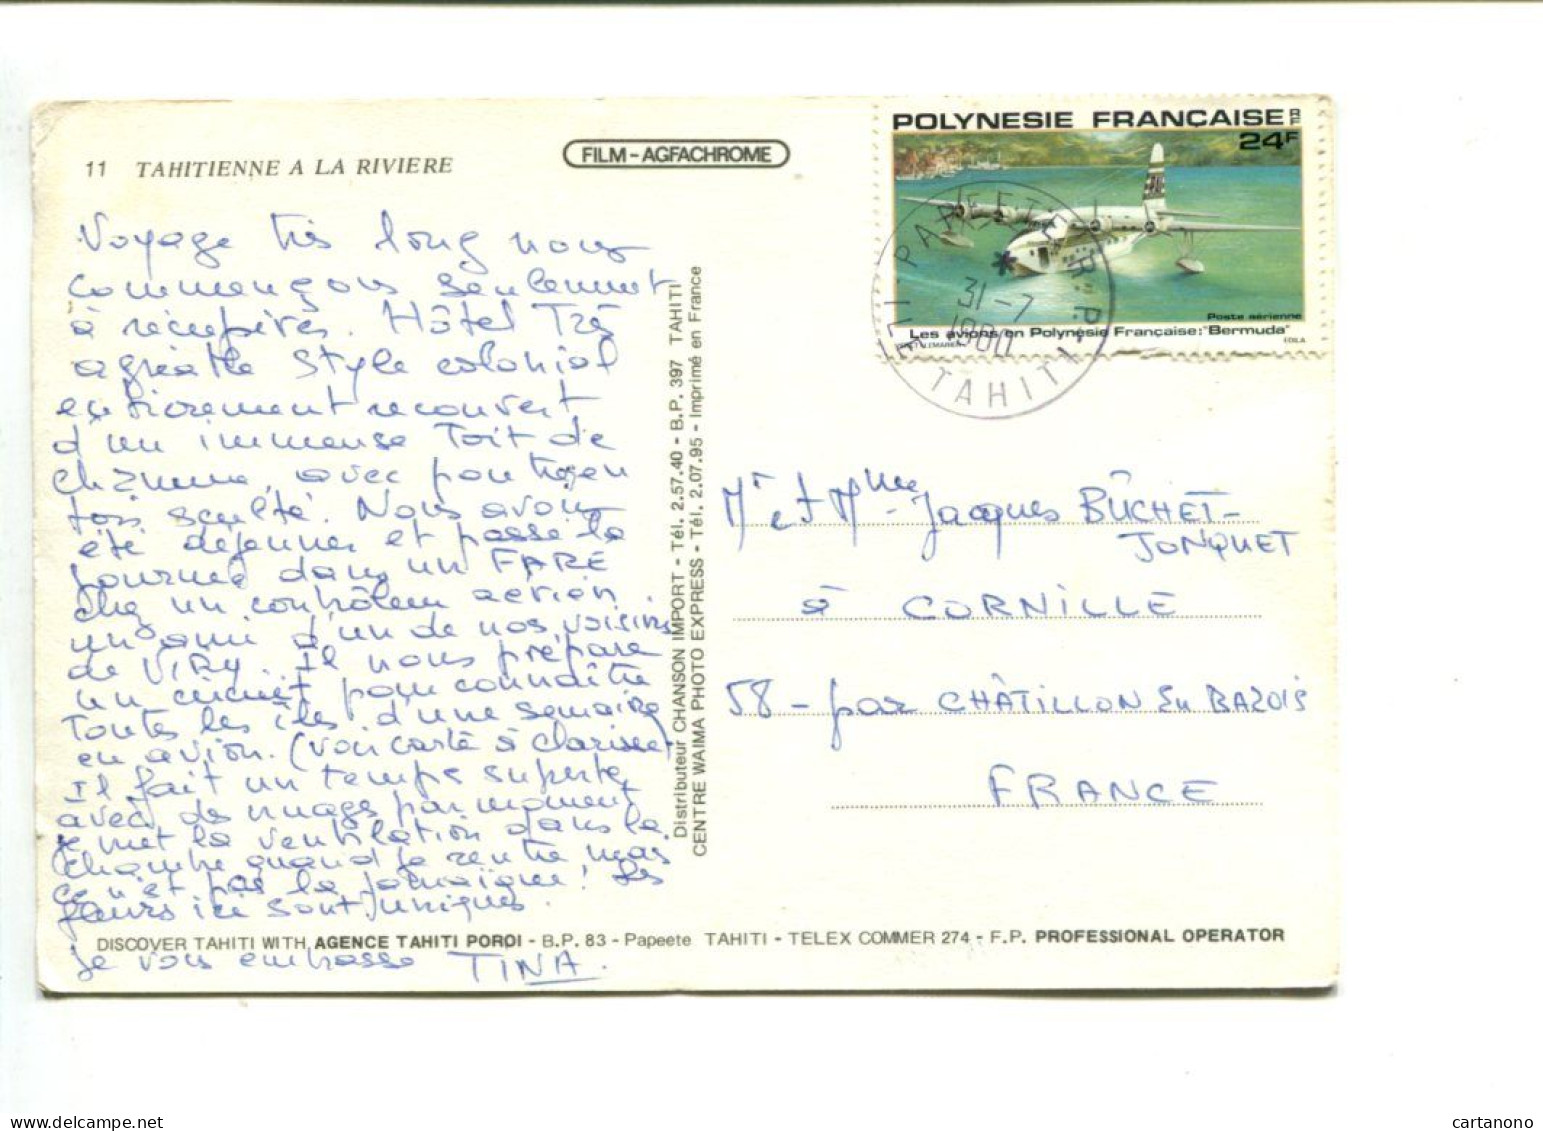 11 TAHITIENNE A LA RIVIERE
FILM - AGFACHROME
POLYNESIE FRANÇAISE RF
24F
Poste aérienne
Les avions en Polynésie Française: "Bermuda"
PAPEETE R.P.
31-7
1980
TAHITI
Voyage très long nous
commençons seulement
à récupérer. Hôtel Très
agréable style colonial
entièrement recouvert
d'un immense Toit de
chaume, avec
bois sculté. Nous avons
été déjeuner et passé la
journée dans un FARÉ
chez un contrôleur aérien.
un ami d'un de nos voisins
de VIRY. Il nous prépare
un circuit pour connaître
Toutes les îles d'une semaine
en avion. (voir carte à Clarisse)
Il fait un temps superbe
avec des nuages par moment
je met la ventilation dans la
chambre quand je rentre mais
ce n'est pas la Jamaïque! Les
fleurs ici sont uniques.
je vous embrasse TINA.
Distributeur CHANSON IMPORT - Tél. 2.57.40 - B.P. 397 TAHITI
CENTRE WAIMA PHOTO EXPRESS - Tél. 2.07.95 - Imprimé en France
Mr et Mme Jacques BÛCHET-
JONQUET
à CORNILLE
58 - par CHÂTILLON EN BAZOIS
FRANCE
DISCOVER TAHITI WITH AGENCE TAHITI POROI - B.P. 83 - Papeete TAHITI - TELEX COMMER 274 - F.P. PROFESSIONAL OPERATOR
delcampe.net
cartanono